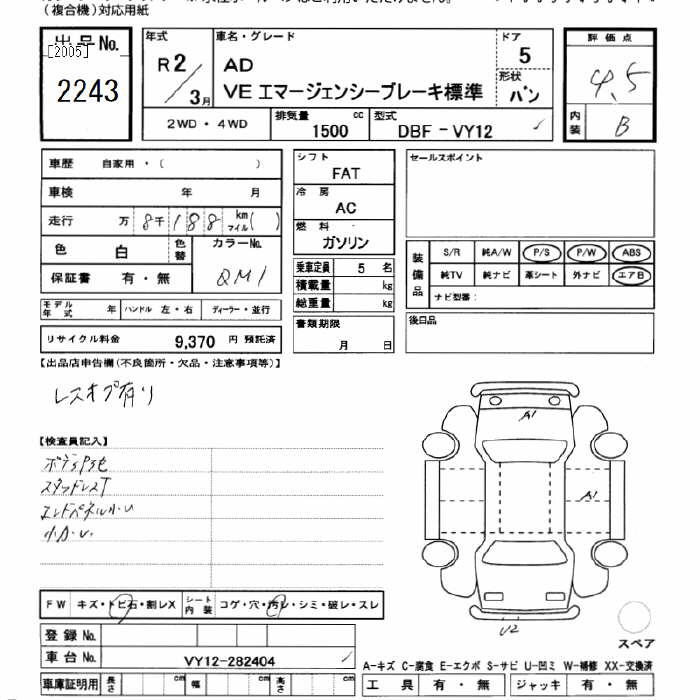 （複合機）対応用紙
出品No.
[2005]
2243
年式
R2/3月
車名・グレード
AD
VE エマージェンシーブレーキ標準
ドア
5
形状
バン
評価点
4.5
内装
B
2WD・4WD
排気量
1500 cc
型式
DBF-VY12
車歴 自家用・（ ）
車検 年 月
走行 万 8千188 km マイル( )
色 白 色替
カラーNo.
QM1
保証書 有・無
モデル年式 年 ハンドル 左・右 ディーラー・並行
リサイクル料金 9,370 円 預託済
シフト
FAT
冷房
AC
燃料
ガソリン
乗車定員 5 名
積載量 kg
総重量 kg
書類期限
月 日
セールスポイント
装備品
S/R 純A/W P/S P/W ABS
純TV 純ナビ 革シート 外ナビ エアB
ナビ型番：
後日品
【出品店申告欄（不良箇所・欠品・注意事項等）】
レスオプ有り
【検査員記入】
スタッドレスT
エンドパネル小U
A1
A1
U2
FW キズ・トビ石・割レX シート内装 コゲ・穴・汚レ・シミ・破レ・スレ
登録No.
車台No. VY12-282404
車庫証明用 長さ cm 幅 cm 高さ cm
スペア
A-キズ C-腐食 E-エクボ S-サビ U-凹ミ W-補修 XX-交換済
工具 有・無 ジャッキ 有・無